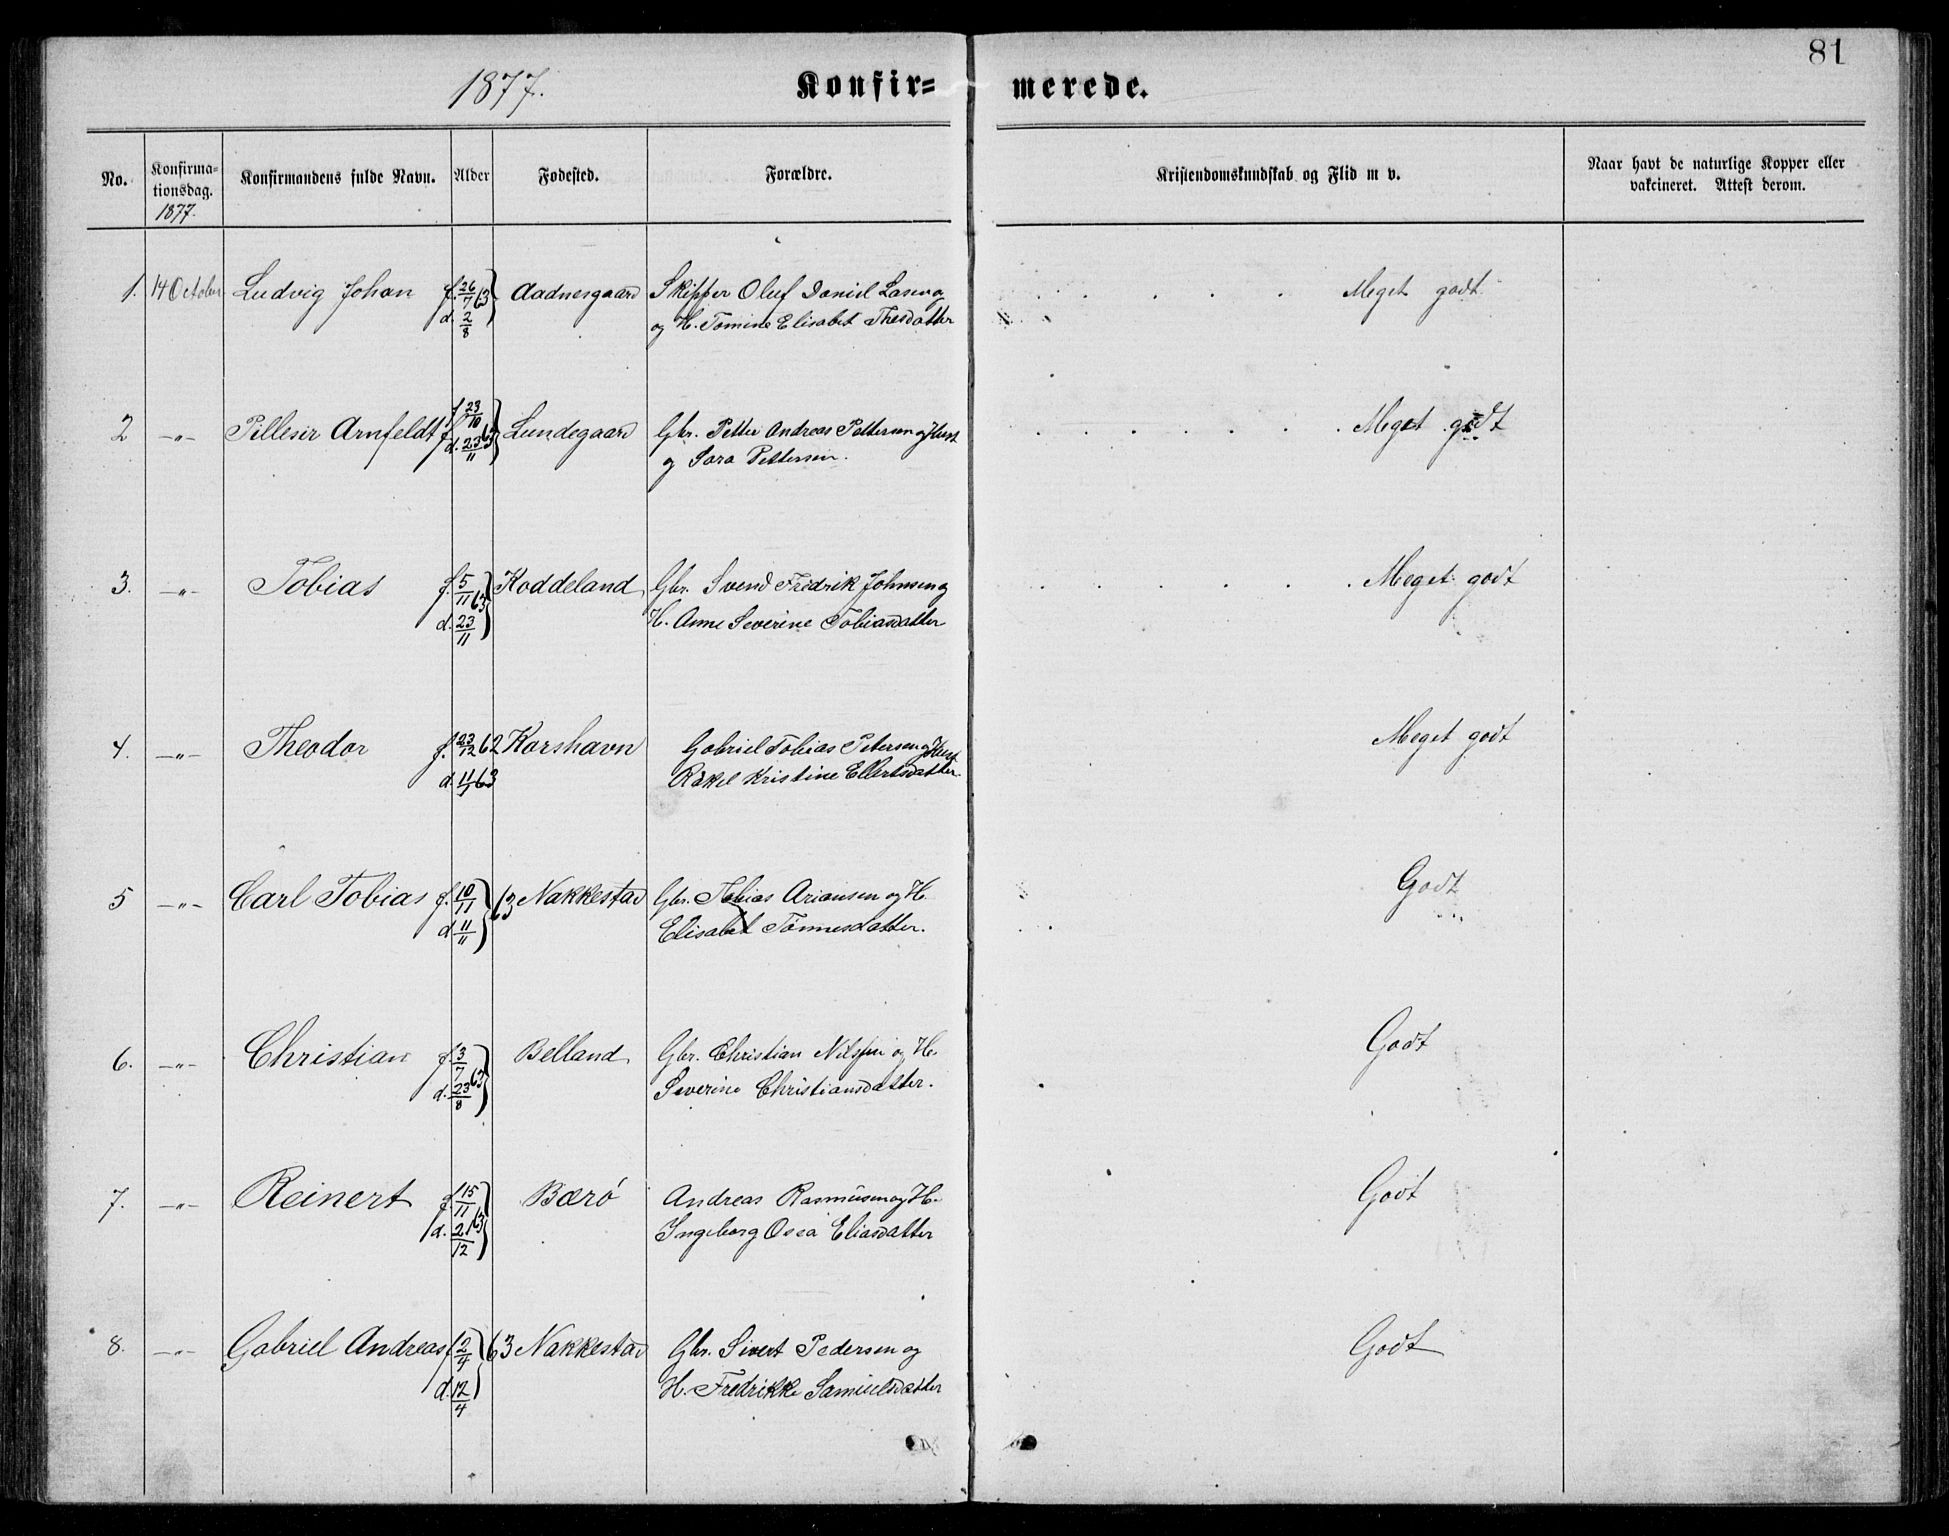 81
1877. Konfir= merede.
No. Konfirma-tionsdag. 1877. Konfirmandens fulde Navn. Alder Fødested. Forældre. Kristendomskundskab og Flid m v. Naar havt de naturlige Kopper eller vakcineret. Attest derom.
1. 14 October Ludvig Johan f. 26/7 63 Aadnesgaard Skipper Oluf Daniel Lasen og Meget godt
d. 2/8 og H. Tomine Elisabet
2 -"- Arnfeldt f. 23/10 63 Lundegaard Gbr. Petter Andreas Pettersen og Hust Meget godt
d. 23/11 og Sara Pettersen.
3. -"- Tobias f. 5/11 63 Koddeland Gbr. Svend Fredrik Johnsen og Meget godt
d. 23/11 H. Anne Severine Tobiasdatter
4. -"- Theodor f. 23/12 62 Korshavn Gabriel Tobias Petersen og Hust Meget godt
d. 11/1 63 Rakel Kristine Ellertsdatter.
5 -"- Carl Tobias f. 10/11 63 Nakkestad Gbr. Tobias Ariansen og H. Godt
d. 11/11 Elisabet Tønnesdatter.
6. -"- Christian f. 3/7 63 Belland Gbr. Christian Nilssen og H. Godt
d. 23/8 Severine Christiansdatter.
7. -"- Reinert f. 15/11 63 Bærø Andreas Rasmusen og H. Godt
d. 21/12 Ingeborg Osea Eliasdatter
8. -"- Gabriel Andreas f. 2/4 63 Nakkestad Gbr. Sivert Pedersen og Godt
d. 12/4 H. Fredrikke Samuelsdatter